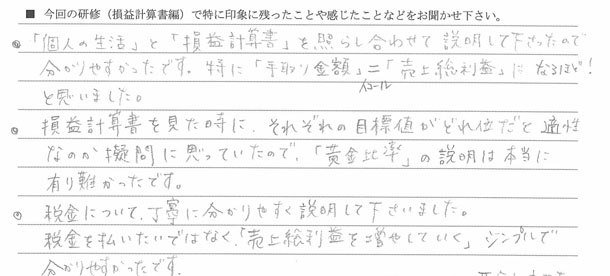 ■ 今回の研修（損益計算書編）で特に印象に残ったことや感じたことなどをお聞かせ下さい。
◎「個人の生活」と「損益計算書」を照らし合わせて説明して下さったので
分かりやすかったです。特に「手取り金額」＝「売上総利益」に なるほど！
イコール
と思いました。
◎ 損益計算書を見た時に、それぞれの目標値がどれ位だと適性
なのか擬問に思っていたので、「黄金比率」の説明は本当に
有り難かったです。
◎ 税金について、丁寧に分かりやすく説明して下さいました。
税金を払いたいではなく、「売上総利益を増やしていく」シンプルで
分かりやすかったです。